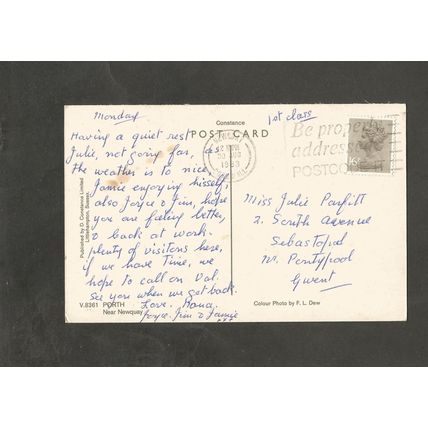 Constance
POST CARD
Monday
Having a quiet rest
Julie, not going far, as
the weather is to nice,
Jamie enjoying hisself,
also Joyce & Jim, hope
you are feeling better,
& back at work.
plenty of visitors here,
if we have Time, we
hope to call on Val.
See you when we get back.
Love. Mona.
Joyce. Jim & Jamie
V.8361 PORTH
Near Newquay
Published by D. Constance Limited
Littlehampton, Sussex.
1st class
1983
Be properly
addressed
POSTCODE
16
Miss Julie Parfitt
2. South Avenue
Sebastopol
Nr. Pontypool
Gwent
Colour Photo by F. L. Dew